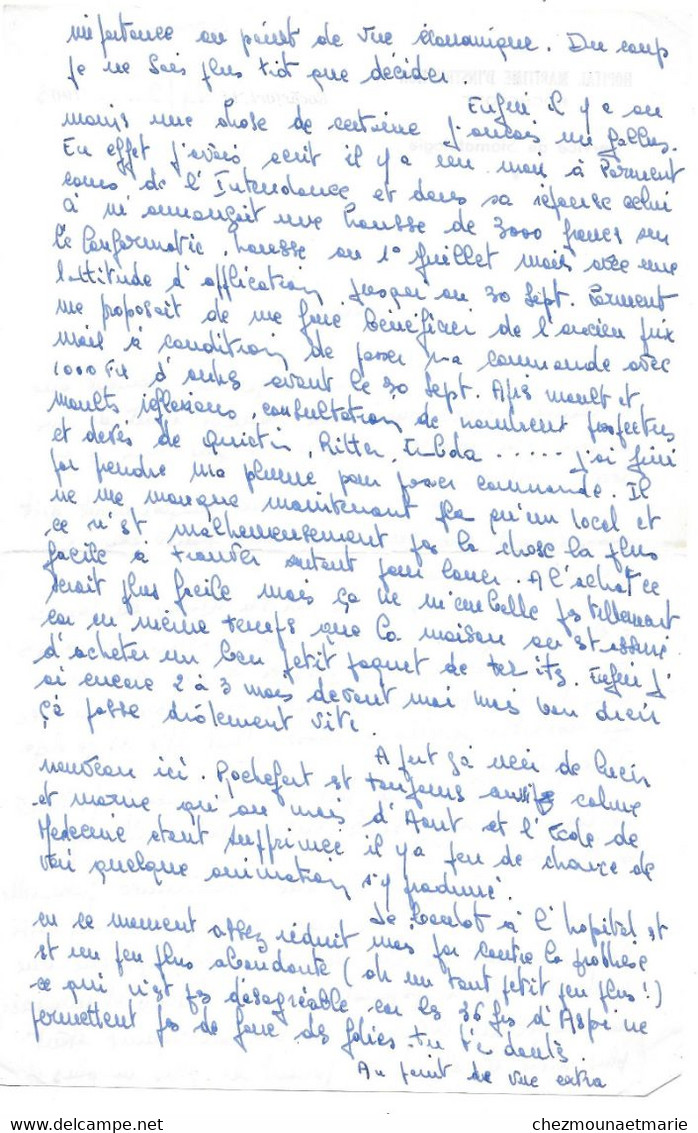 importance au point de vue économique. Du coup
je ne sais plus tôt que decider.
Enfin il y a au
moins une chose de certaine j'aurais un
En effet j'avais ecrit il y a un mois à Parment
cours de l'Intendance et dans sa réponse celui
çi m'annonçait une hausse de 3000 francs sur
le Conformatic, hausse au 1° Juillet mais avec une
latitude d'application jusqu'au 30 Sept. Parment
me proposait de me faire bénéficier de l'ancien prix
mais à condition de passer ma commande avec
1000 Frs d'arrhes avant le 30 Sept. Après moult et
moults reflexions, consultation de nombreux prospectus
et devis de Quiétin, Ritter, Imbda ..... j'ai fini
par prendre ma plume pour passer commande. Il
ne me manque maintenant plus qu'un local et
ce n'est malheureusement pas la chose la plus
facile à trouver surtout pour louer. A l'achat ce
serait plus facile mais ça ne m'emballe pas tellement
car en même temps que la maison on est assuré
d'acheter un bon petit paquet de termites. Enfin j'
ai encore 2 à 3 mois devant moi mais bon dieu
çà passe drôlement vite.
A part çà rien de bien
nouveau ici. Rochefort est toujours aussi calme
et morne qu'au mois d'Aout et l'Ecole de
Medecine étant supprimée il y a peu de chance de
voir quelque animation s'y produire.
Le boulot à l'hopital est
en ce moment assez réduit mais par contre la prothèse
est un peu plus abondante (oh un tout petit peu plus!)
ce qui n'est pas désagréable car les 36 frs d'Aspi ne
permettent pas de faire des folies - tu t'en doutes
Au point de vue extra
chezmounaetmarie